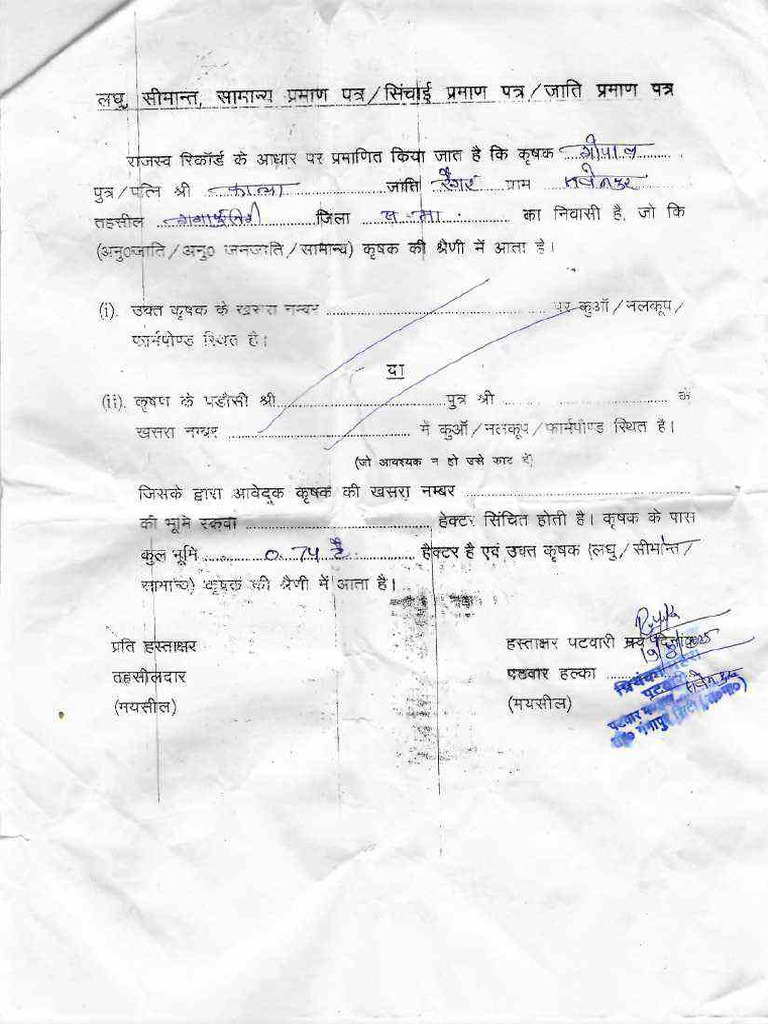 लघु, सीमान्त, सामान्य प्रमाण पत्र/सिंचाई प्रमाण पत्र/जाति प्रमाण पत्र
राजस्व रिकॉर्ड के आधार पर प्रमाणित किया जात है कि कृषक ....गोपाल....
पुत्र/पत्नि श्री ....काल्या.... जाति रैगर ग्राम
तहसील .... जिला .... का निवासी है, जो कि
(अनु0जाति/अनु0 जनजाति/सामान्य) कृषक की श्रैणी में आता है।
(i). उक्त कृषक के खसरा नम्बर .................... पर कुऑ/नलकूप/
फार्मपोण्ड स्थित है।
या
(ii). कृषण के पडौसी श्री.................... पुत्र श्री .................... के
खसरा नम्बर .................... में कुऑ/नलकूप/फार्मपोण्ड स्थित है।
(जो आवश्यक न हो उसे काट दें)
जिसके द्वारा आवेदक कृषक की खसरा नम्बर ....................
की भूमि रकवा .................... हेक्टर सिंचित होती है। कृषक के पास
कुल भूमि ....0.74 है.... हैक्टर है एवं उक्त कृषक (लघु/सीमान्त/
सामान्य) कृषक की श्रैणी में आता है।
प्रति हस्ताक्षर
हस्ताक्षर पटवारी मय दिनांक
तहसीलदार
पटवार हल्का ........
(मयसील)
(मयसील)